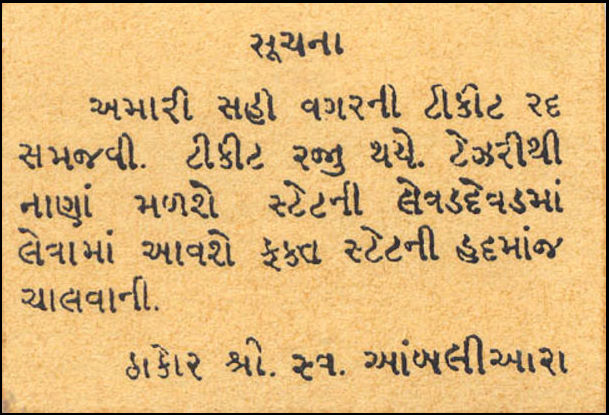 સૂચના
અમારી સહી વગરની ટીકીટ રદ
સમજવી. ટીકીટ રજુ થયે. ટેઝરીથી
નાણાં મળશે સ્ટેટની લેવડદેવડમાં
લેવામાં આવશે ફક્ત સ્ટેટની હદમાંજ
ચાલવાની.
ઠાકોર શ્રી. સ્વ. આંબલીઆરા